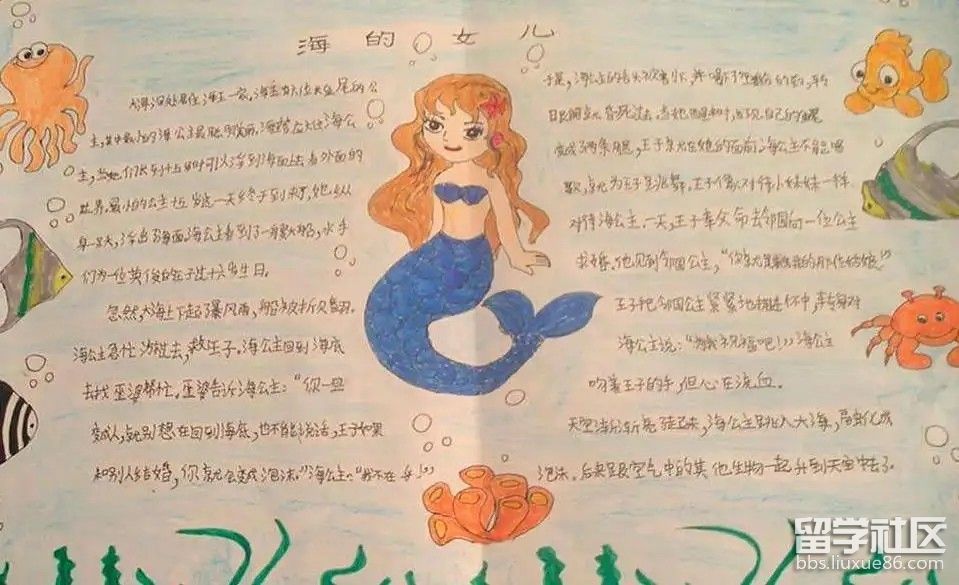 海的女儿
大海深处居住海王一家,海王有六位大鱼尾的公
主,其中最小的海公主最聪明美丽,海
主,当她们长到十五时可以浮到海面去看外面的
世界。最小的公主这一天终于到来了,她纵
身一跃,浮出了海面。海公主看到了一艘大船,水手
们为一位英俊的王子过十六岁生日。
忽然,大海上下起暴风雨,船被折断翻。
海公主急忙游过去,救王子。海公主回到海底
去找巫婆帮忙。巫婆告诉海公主:“你一旦
变成人,就别想在回到海底,也不能说话,王子如果
和别人结婚,你就会变成泡沫。”海公主:“我不在乎!”
于是,海公主的
昏死过去,当她醒来时,发现自己的尾
变成了两条腿,王子来到她的面前,海公主不能唱
歌,就为王子跳舞,王子像对待小妹妹一样
对待海公主。一天,王子奉父命去邻国向一位公主
求婚。他见到邻国公主,“你就是救我的那位姑娘!”
王子把邻国公主紧紧地拥进怀中,转身对
海公主说:“为我祝福吧!”海公主
吻着王子的手,但心在流血。
天空渐渐亮起来,海公主跳入大海,身化成
泡沫。后来跟空气中的其他生物一起升到天空中去了。
留学社区
bbs.liuxue86.com